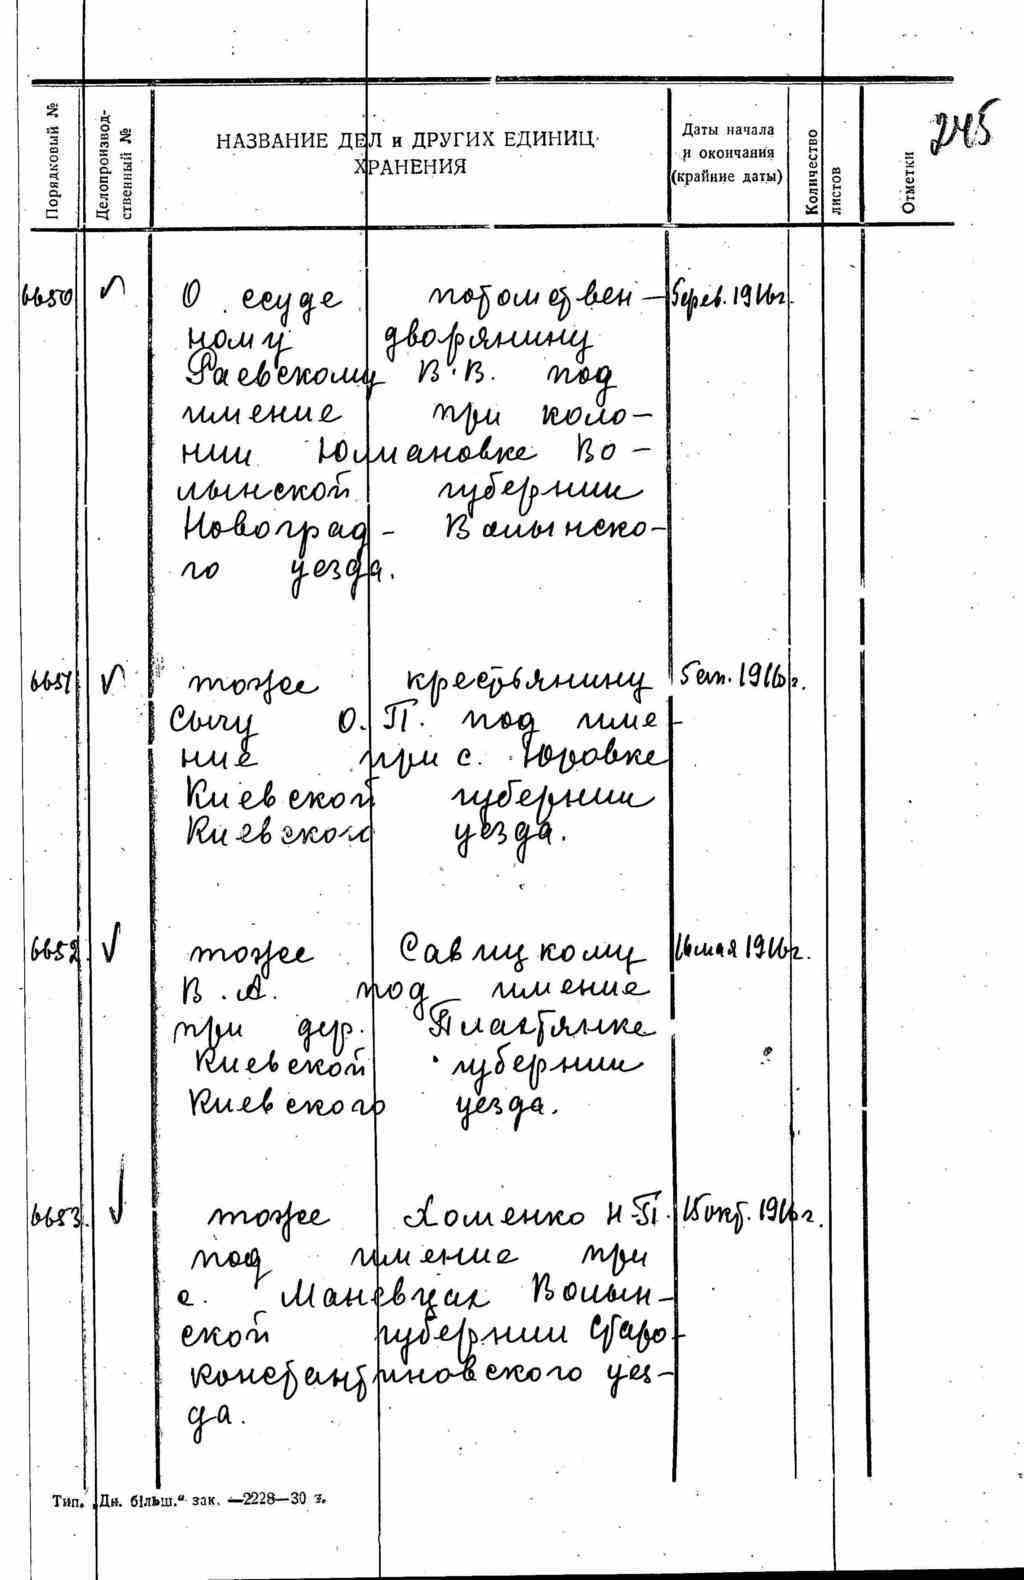 245
Порядковый №
Делопроизвод-
ственный №
НАЗВАНИЕ ДЕЛ и ДРУГИХ ЕДИНИЦ
ХРАНЕНИЯ
Даты начала
и окончания
(крайние даты)
Количество
листов
Отметки
6650 О ссуде потомствен- 5 фев. 1916 г.
ному дворянину
Раевскому В. В. под
имение при коло-
нии Юлиановке Во-
лынской губернии
Новоград- Волынско-
го уезда.
6651 тоже крестьянину 5 1916 г.
Сычу О. П. под име-
ние при с. Юровке
Киевской губернии
Киевского уезда.
6652 тоже Савицкому 16 мая 1916 г.
В. А. под имение
при дер.
Киевской губернии
Киевского уезда.
6653. тоже Хоменко Н. П. 15 окт. 1916 г.
под имение при
с. Маневцах Волын-
ской губернии Старо-
константиновского уез-
да.
Тип. „Дн. більш.“ зак. —2228—30 т.